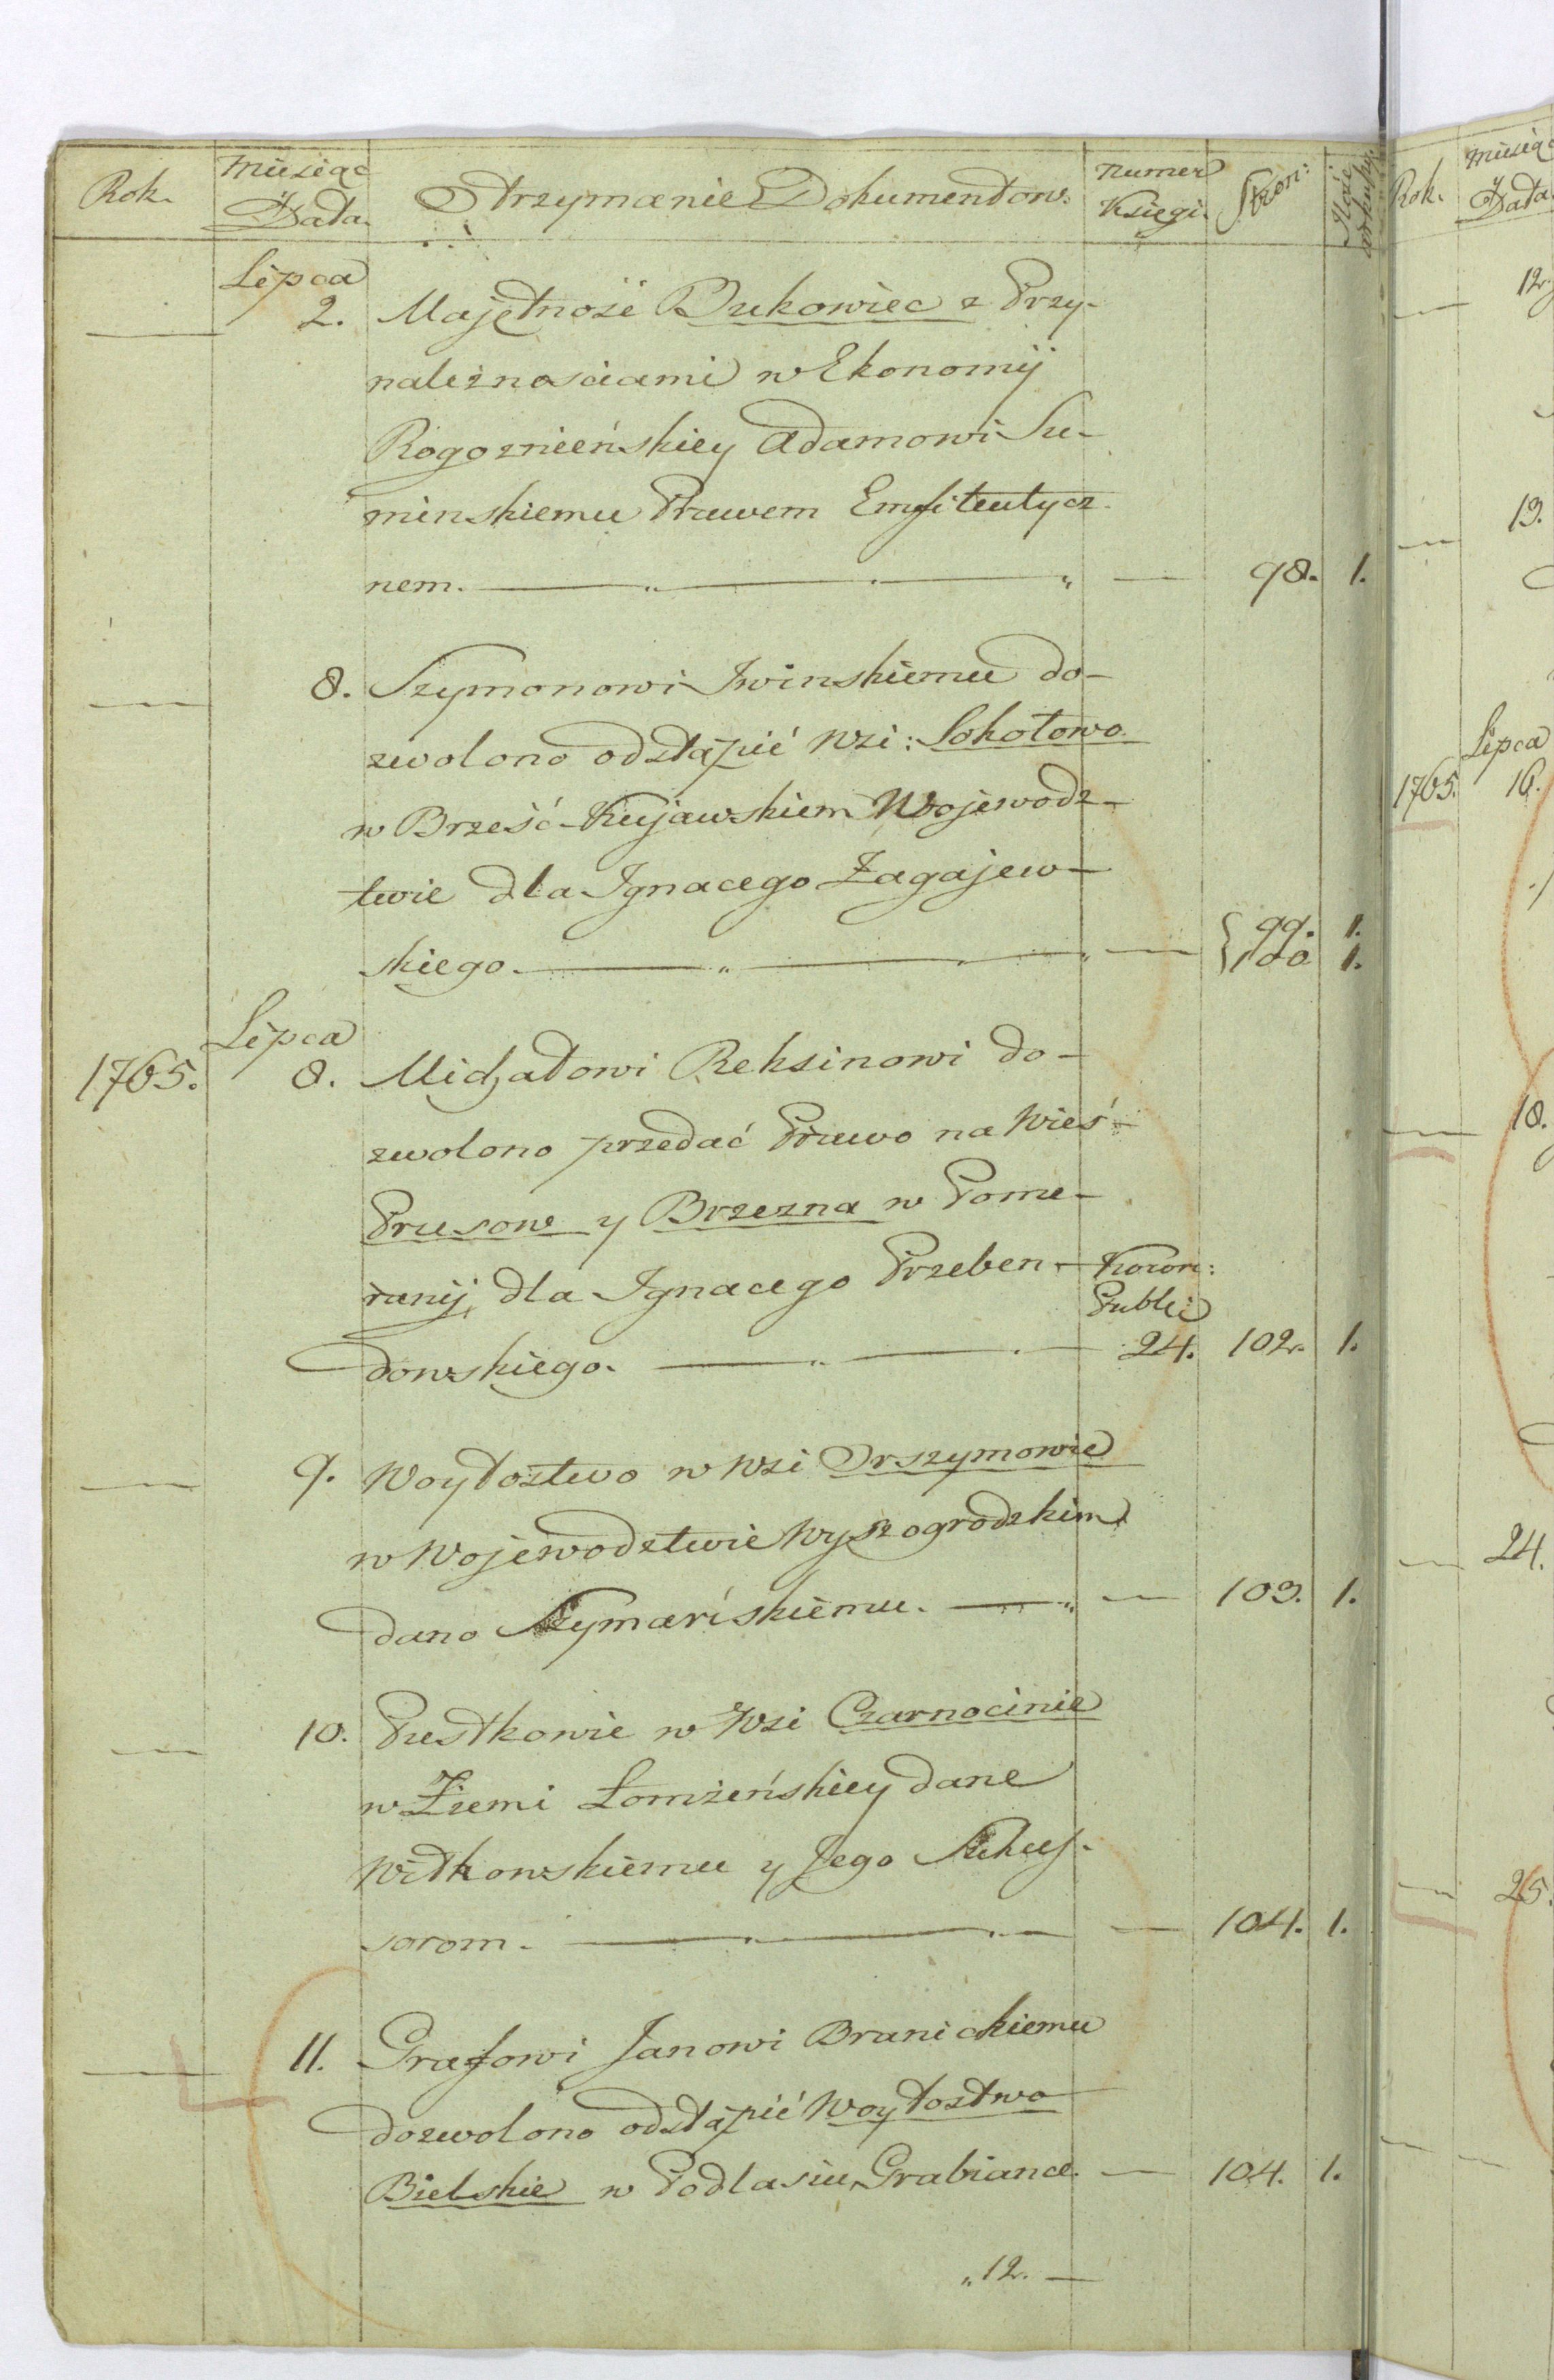 Rok. Miesiąc Data. Otrzymanie Dokumentow. Numer Księgi. Stron:
Lipca
2. Majętność Bukowiec z Przy-
należnosciami w Ekonomij
Rogoznieńskiey Adamowi Su-
minskiemu Prawem Emfiteutycz-
nem. — 98. 1.
8. Szymonowi Iwinskiemu do-
zwolono odstąpić Wsi: Sokołowo
w Brześć-Kujawskiem Wojewodz-
twie dla Ignacego Zagajew-
skiego. — { 99. 1.
100 1.
Lipca
1765. 8. Michałowi Reksinowi do-
zwolono przedać Prawo na Wieś
Prusow y Brzezna w Pome-
ranij dla Ignacego Przeben- Koron:
Publi:
dowskiego. — 24. 102. 1.
9. Woytostwo w Wsi Orszymowie
w Wojewodztwie Wyszogrodzkim
dano Szymańskiemu. — 103. 1.
10. Pustkowie w Wsi Czarnocinie
w Ziemi Łomżeńskiey dane
Witkowskiemu y Jego Sukces-
sorom. — 104. 1.
11. Grafowi Janowi Branickiemu
dozwolono odstąpić Woytostwo
Bielskie w Podlasiu Grabiance. — 104. 1.
„12. —
Rok. Miesiąc Data.
12.
13.
Lipca
1765. 16.
18.
24.
25.